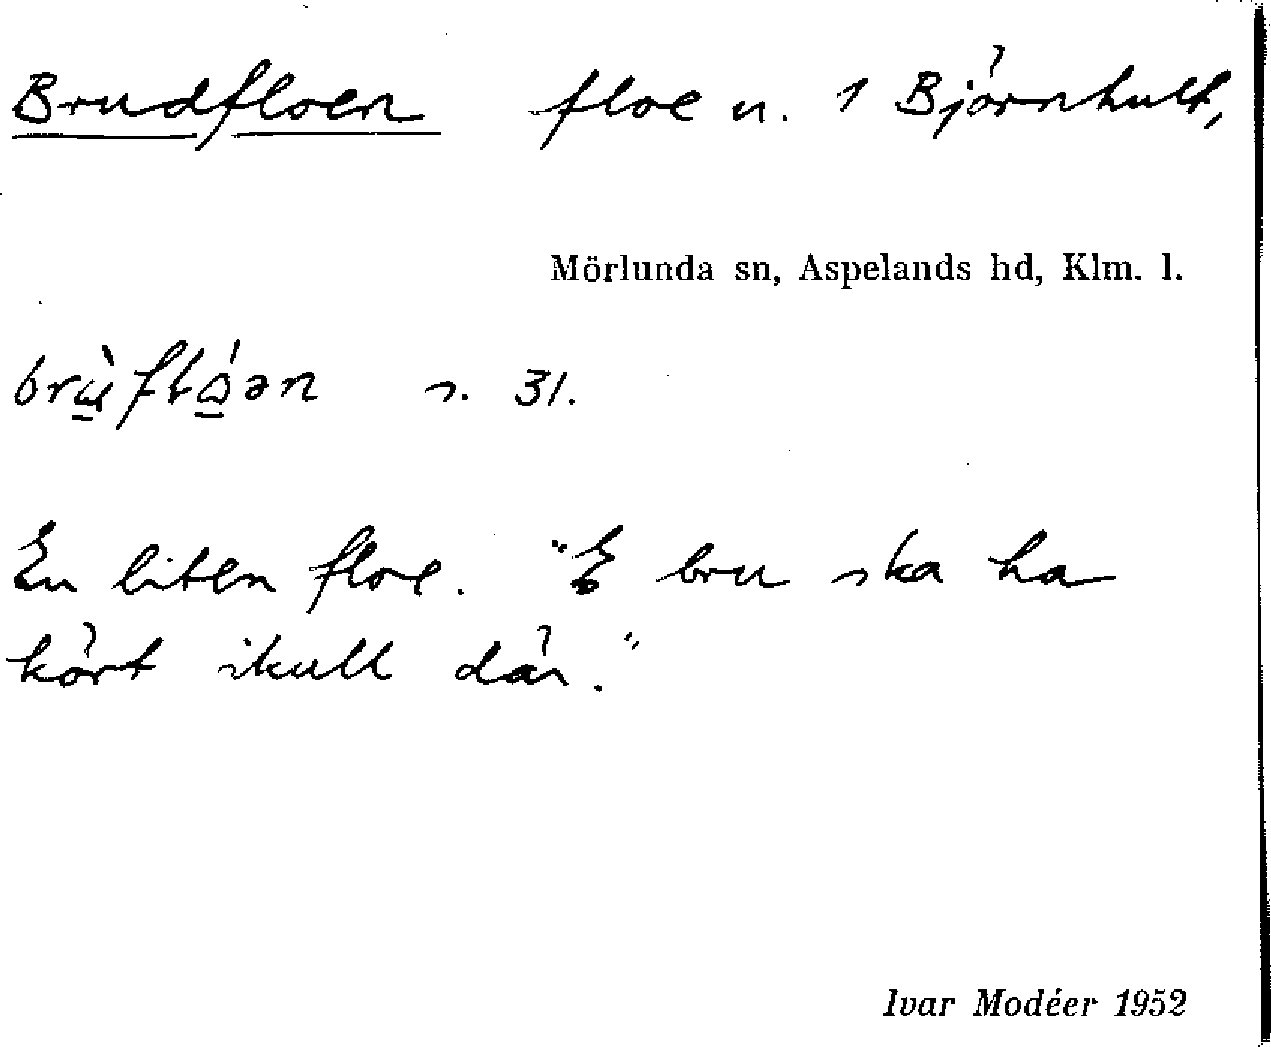 Brudfloen floe u. 1 Björnhult,
Mörlunda sn, Aspelands hd, Klm. l.
s. 31.
En liten floe. "E bru ska ha
kört ikull där."
Ivar Modéer 1952